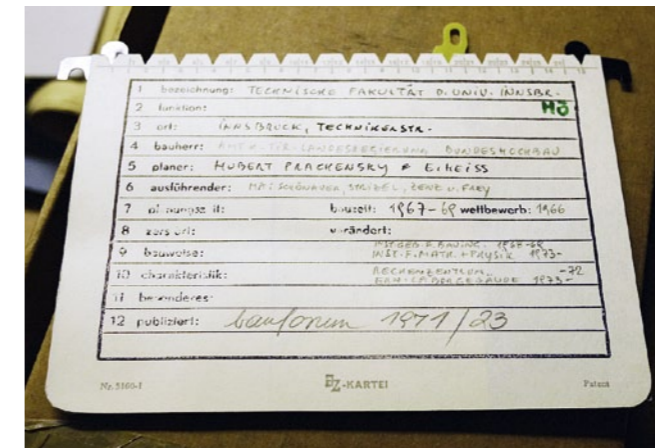 1 bezeichnung: TECHNISCHE FAKULTÄT D. UNIV. INNSBR.
2 funktion: HÖ
3 ort: INNSBRUCK, TECHNIKERSTR.
4 bauherr: AMT D. TIR. LANDESREGIERUNG BUNDESHOCHBAU
5 planer: HUBERT PRACHENSKY + E. HEISS
6 ausführender: MAYR, SCHÖNAUER, STRIBEL, u. FREY
7 planungszeit: bauzeit: 1967-69 wettbewerb: 1966
8 zerstört: verändert:
9 bauweise: INST. GEB. F. BAUING. 1968-69
INST. F. MATH. + PHYSIK 1973-
10 charakteristik: RECHENZENTRUM -72
1973-
11 besonderes:
12 publiziert: bauforum 1971/23
Nr. 5160-1 DZ-KARTEI Patent